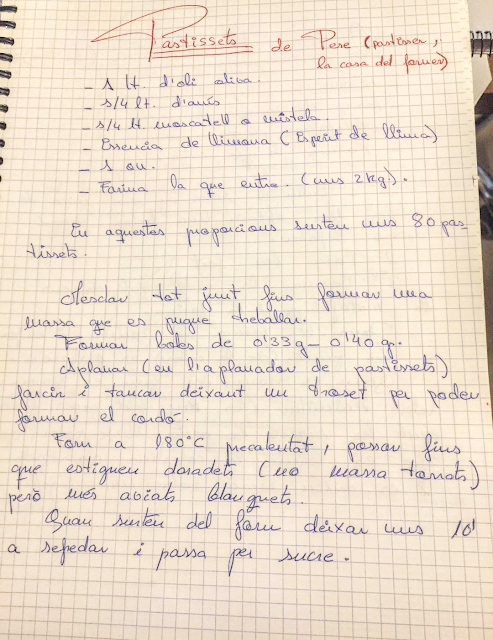 Pastissets de Pere (pastisser,
la casa del forner)
- 1 lt. d'oli oliva.
- 1/4 lt. d'anís
- 1/4 lt. moscatell o mistela
- Essencia de llimona (Esperit de llima)
- 1 ou.
- Farina la que entre. (uns 2 kg.).
En aquestes proporcions surten uns 80 pas-
tissets.
Mesclar tot junt fins formar una
massa que es pugue treballar.
Formar boles de 0'33 g - 0'40 g.
Aplanar (en l'aplanador de pastissets)
farcir i tancar deixant un troset per poder
formar el cordó.
Forn a 180°C precalentat, possar fins
que estiguen doradets (no massa torrats)
però més aviats blanquets.
Quan surten del forn deixar uns 10'
a refredar i passa per sucre.